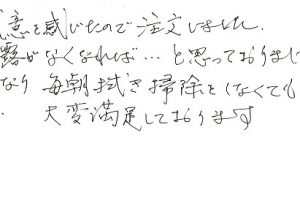 意を感じたので注文しました.
露がなくなれば…と思っておりまし
なり 毎朝拭き掃除をしなくても
. 大変満足しております